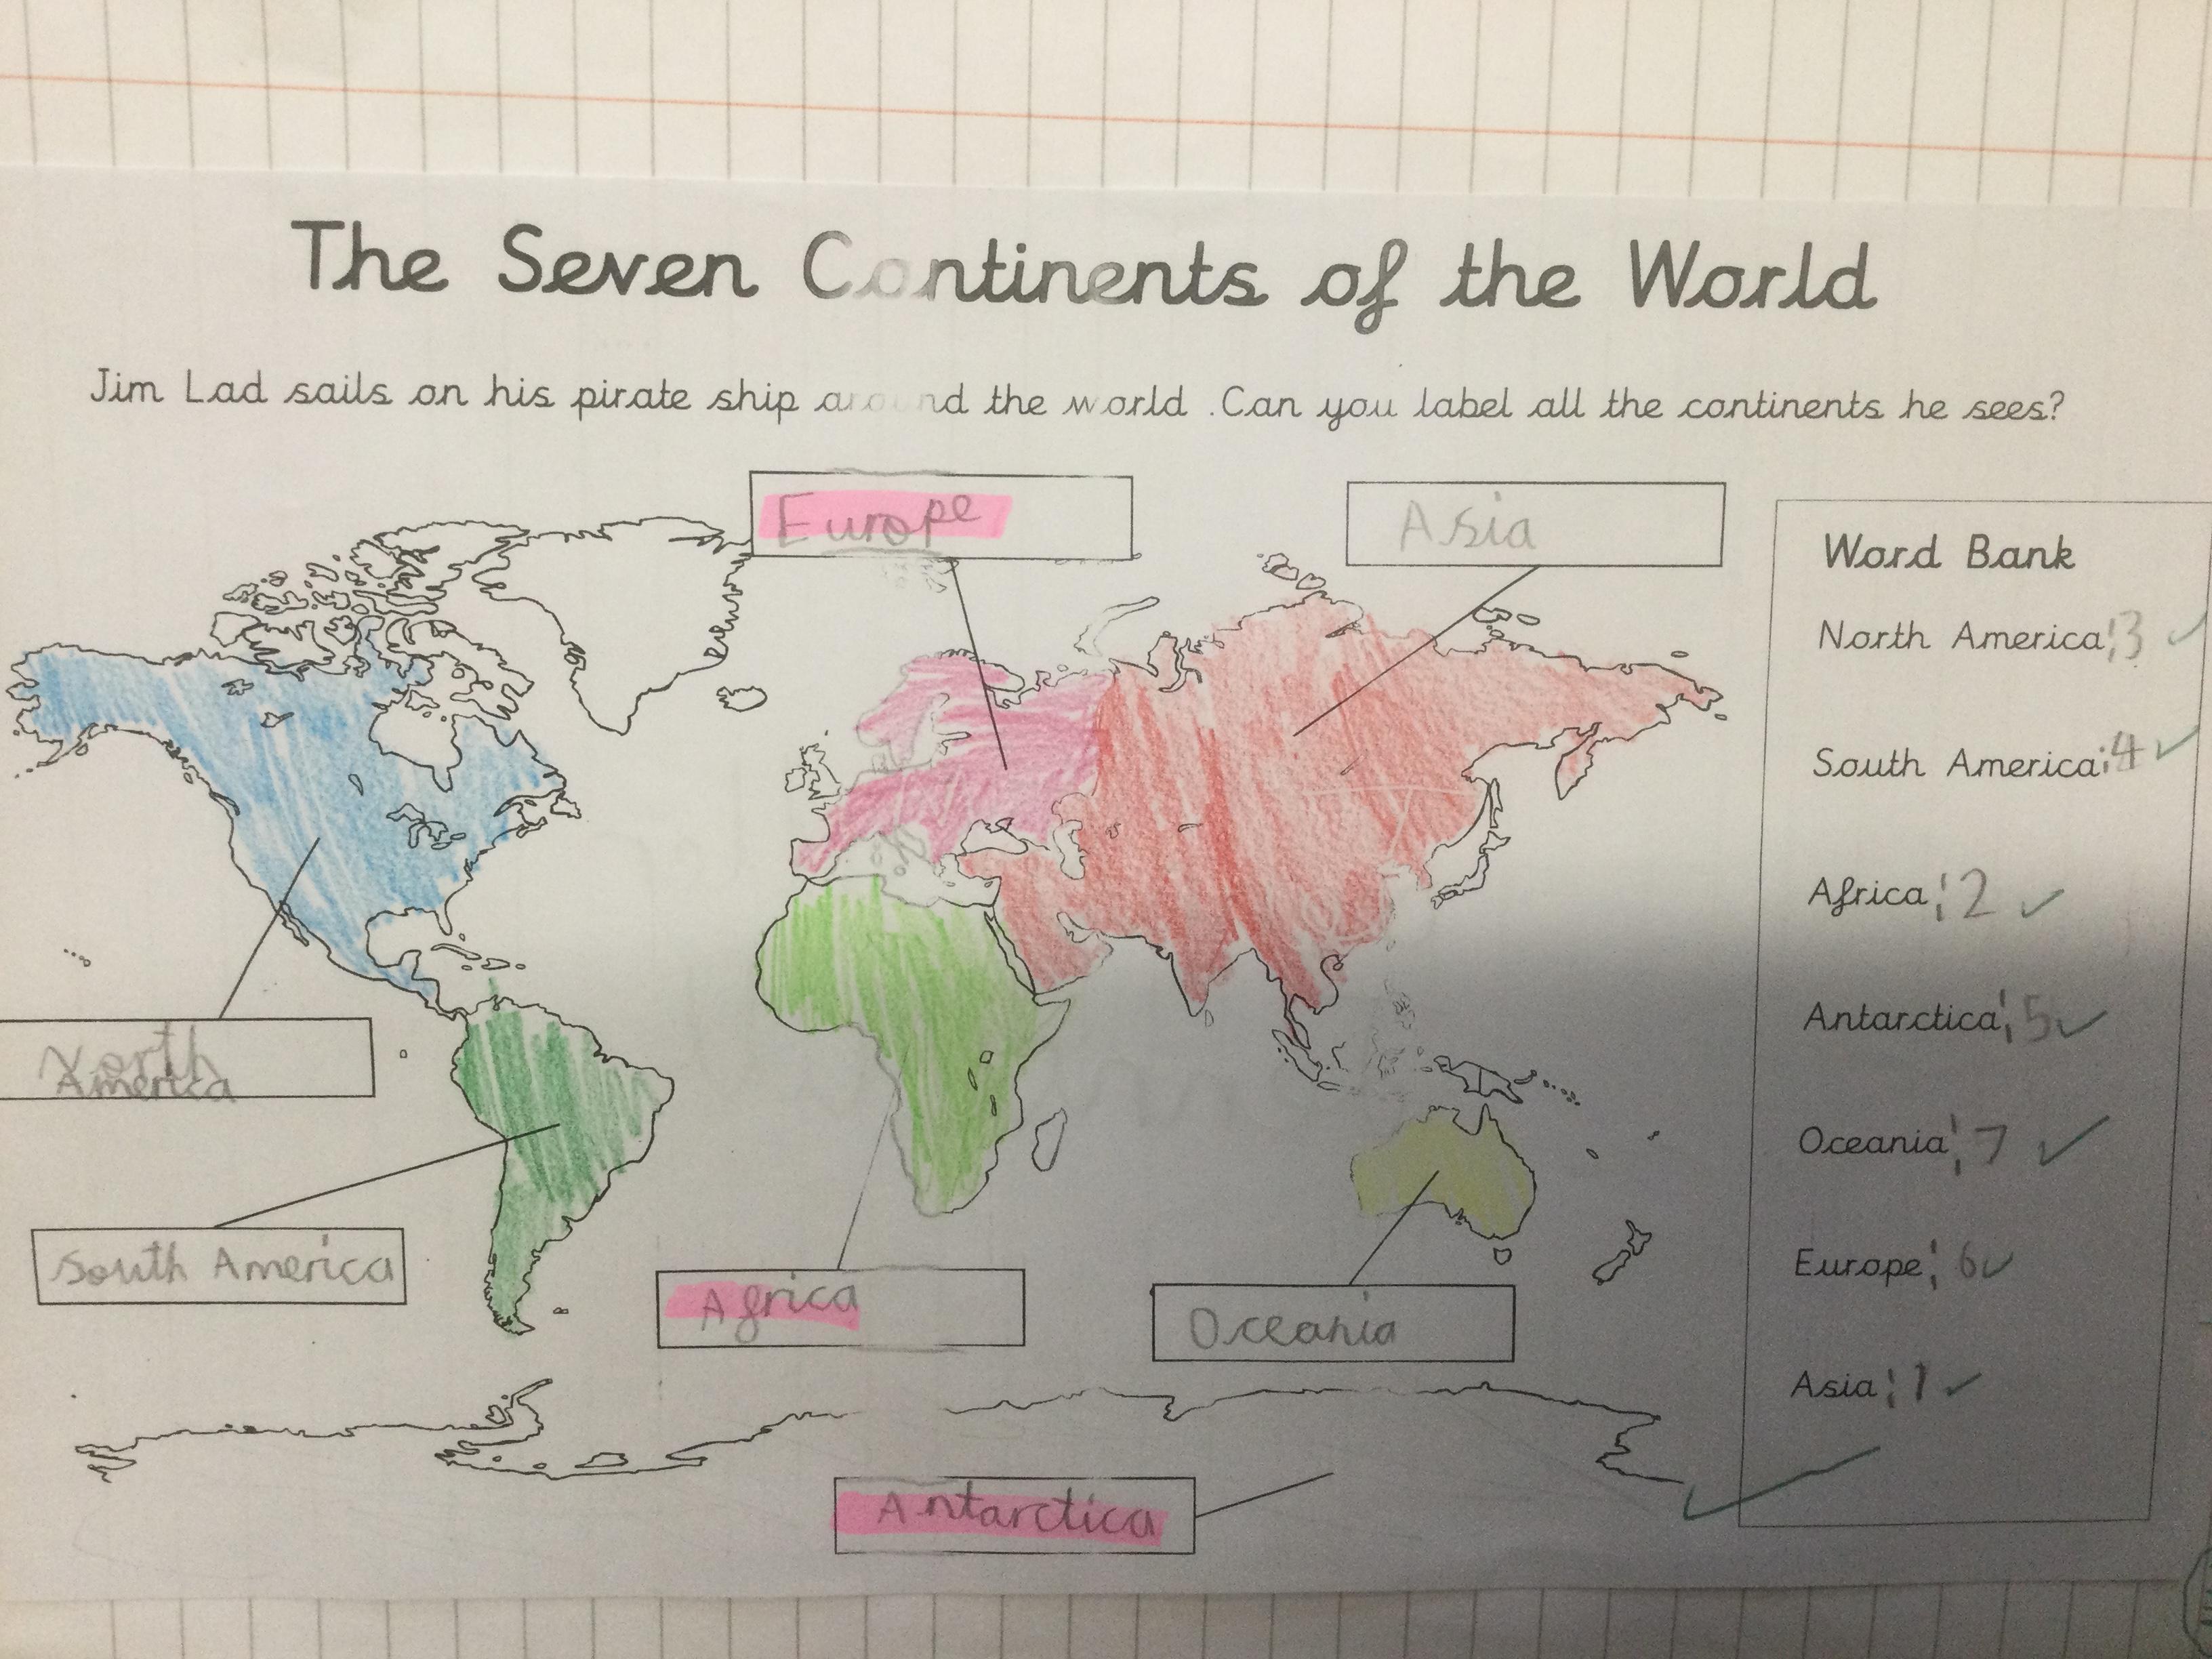 The Seven Continents of the World
Jim Lad sails on his pirate ship around the world .Can you label all the continents he sees?
Europe
Asia
North
America
South America
Africa
Oceania
Antarctica
Word Bank
North America: 3
South America: 4
Africa: 2
Antarctica: 5
Oceania: 7
Europe: 6
Asia: 1